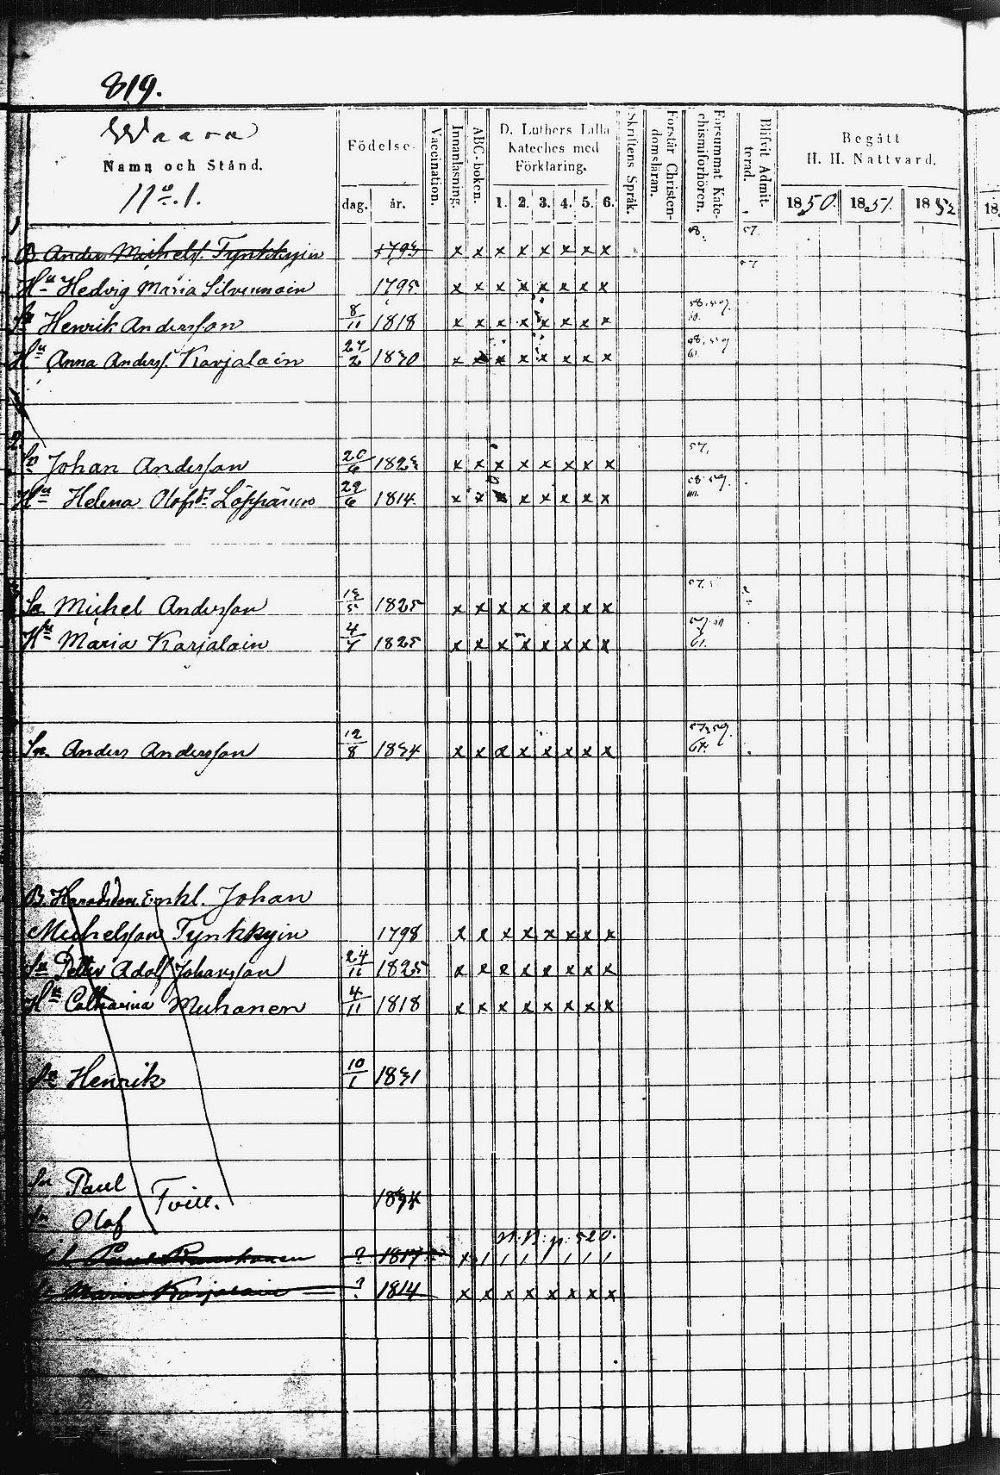 819.
Waara
Namn och Stånd.
No. 1.
Födelse-
dag.
år.
Vaccination.
Innanläsning.
ABC-boken.
D. Luthers Lilla
Kateches med
Förklaring.
1. 2. 3. 4. 5. 6.
Skriftens Språk.
Förstår Christen-
domsläran.
Försummat Kate-
chismiförhören.
Blifvit Admit-
terad.
Begått
H. H. Nattvard.
1850. 1851. 1852
1
B. Anders Michelss. Tynkkyin 1793 x x x x x x x x 57
Hu Hedvig Maria Silvennoin 1795 x x x x x x x x
Sn Henrik Andersson 8/11 1818 x x x x x x x x 58.59.
Hu Anna Anderss. Karjalain 27/2 1830 x x x x x x x x 58.59
2.
Sn Johan Andersson 20/6 182 x x x x x x x x 57.
Hu Helena Olofsdr Löppänen 29/6 1814. x x x x x x x x 58.59.
Sn Michel Andersson 1825 x x x x x x x x 57.
Hu Maria Karjalain 4/4 1825 x x x x x x x x 61.
Sn. Anders Andersson 12/8 1834 x x x x x x x x 57.59.
B. Enkl. Johan
Michelsson Tynkkyin 1798 x x x x x x x x
Sn Petter Adolf Johansson 24/11 1825 x x x x x x x x
Hu Catharina Muhonen 4/11 1818 x x x x x x x x
Sn Henrik 10/1 1831
Sn Paul
Tvill. 1834
Sn Olof
N.B. p. 520.
Paul ? 1817 x / / / / / / /
Maria Karjalain ? 1814 x x x x x x x x